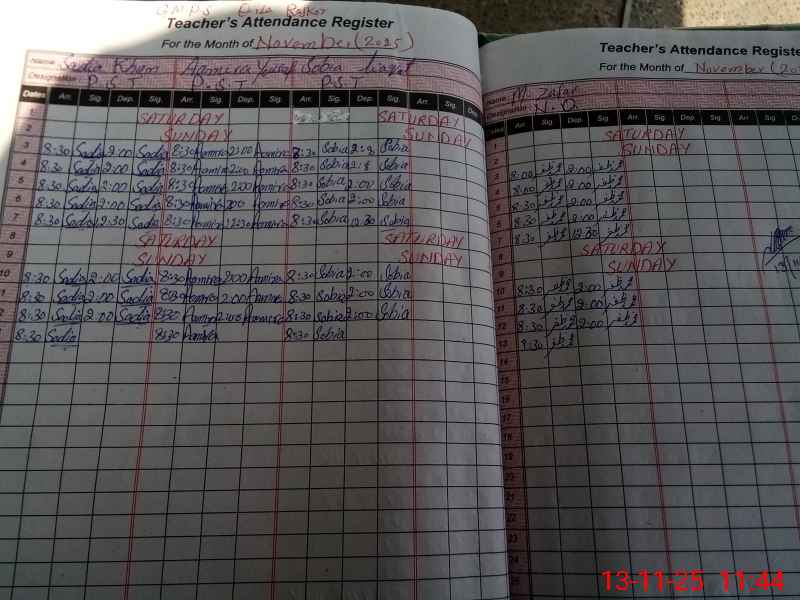 Teacher's Attendance Register
For the Month of November (2025)
Name Sadia Khan Aamira Yousaf Sobia Liaqat
Designation P.S.T P.S.T P.S.T
Dates Arr. Sig. Dep. Sig. Arr. Sig. Dep. Sig. Arr. Sig. Dep. Sig. Arr. Sig.
1 SATURDAY SATURDAY
2 SUNDAY SUNDAY
3 8:30 Sadia 2:00 Sadia 8:30 Aamira 2:00 Aamira 8:30 Sobia Sobia
4 8:30 Sadia 2:00 Sadia 8:30 Aamira 2:00 Aamira 8:30 Sobia Sobia
5 8:30 Sadia 2:00 Sadia 8:30 Aamira 2:00 Aamira 8:30 Sobia 2:00 Sobia
6 8:30 Sadia 2:00 Sadia 8:30 Aamira 2:00 Aamira 8:30 Sobia 2:00 Sobia
7 8:30 Sadia 12:30 Sadia 8:30 Aamira 12:30 Aamira 8:30 Sobia 12:30 Sobia
8 SATURDAY SATURDAY
9 SUNDAY SUNDAY
10 8:30 Sadia 2:00 Sadia 8:30 Aamira 2:00 Aamira 8:30 Sobia 2:00 Sobia
8:30 Sadia 2:00 Sadia 8:30 Aamira 2:00 Aamira 8:30 Sobia 2:00 Sobia
8:30 Sadia 2:00 Sadia 8:30 Aamira 2:00 Aamira 8:30 Sobia 2:00 Sobia
8:30 Sadia 8:30 Aamira 8:30 Sobia
Teacher's Attendance Registe
For the Month of November (20
Name M. Zafar
Designation N.Q
Arr. Sig. Dep. Sig. Arr. Sig. Dep. Sig. Arr.
1 SATURDAY
2 SUNDAY
3 8:00 2:00
4 8:00 2:00
5 8:30 2:00
6 8:30 2:00
7 8:30 12:30
8 SATURDAY
9 SUNDAY
10 8:30 2:00
11 8:30 2:00
12 8:30 2:00
13 8:30
14
15
16
17
18
19
20
21
22
23
24
13-11-25 11:44